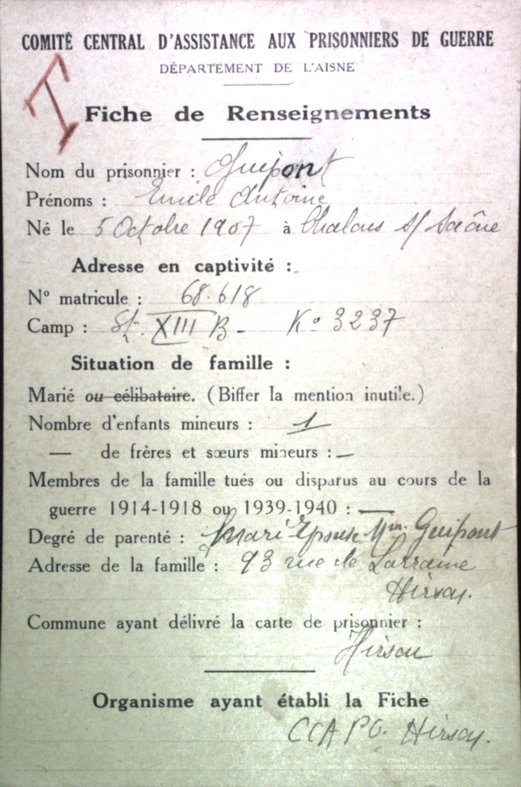 COMITÉ CENTRAL D'ASSISTANCE AUX PRISONNIERS DE GUERRE
DÉPARTEMENT DE L'AISNE
I
Fiche de Renseignements
Nom du prisonnier : Guipont
Prénoms : Emile Antoine
Né le 5 Octobre 1907 à Chalons s/ Saône
Adresse en captivité :
N° matricule : 68.618
Camp : St. XIII B - K° 3237
Situation de famille :
Marié ou célibataire. (Biffer la mention inutile.)
Nombre d'enfants mineurs : 1
— de frères et sœurs mineurs : —
Membres de la famille tués ou disparus au cours de la
guerre 1914-1918 ou 1939-1940 : —
Degré de parenté : Mari Epouse Mme Guipont
Adresse de la famille : 93 rue de Lorraine
Hirson.
Commune ayant délivré la carte de prisonnier :
Hirson
Organisme ayant établi la Fiche
CCAPG. Hirson.